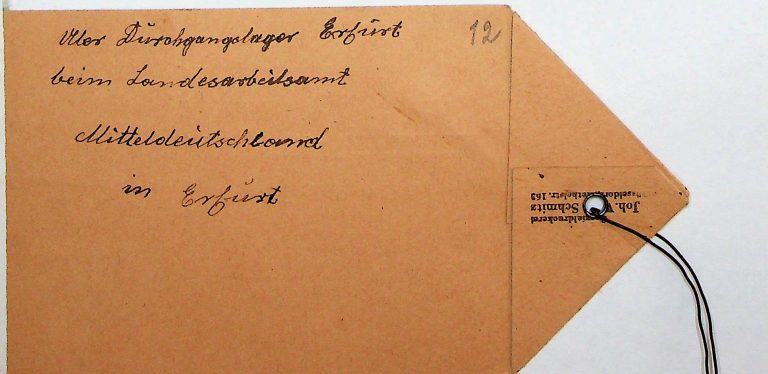 Über Durchgangslager Erfurt
12
beim Landesarbeitsamt
Mitteldeutschland
in Erfurt
Joh. Schmitz
Düsseldorf, Rethelstr. 163